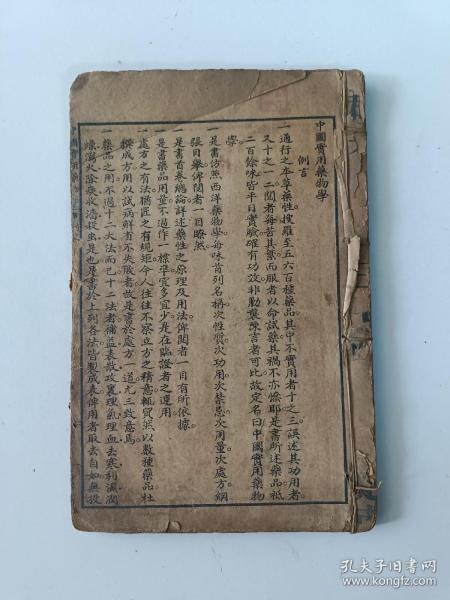 中國實用藥物學
例言
一通行之本草藥性搜羅至五六百種藥品其中不實用者十之三誤述其功用者
又十之一二閱者每苦其繁而服者以命試藥其禍不亦慘耶是書所述藥品祗
二百餘味皆平日實驗確有功效非勦襲陳言者可比故定名曰中國實用藥物
學
一是書仿照西洋藥物學每味首列名稱次性質次功用次禁忌次用量次處方綱
張目舉俾閱者一目瞭然
一是書首卷總論詳述藥性之原理及用法俾閱者一目有所依據
一是書藥品用量不過作一標準宜多宜少是在臨證者之運用
一處方之有法猶匠之有規矩今人往往不察立方之精意輒貿然以數種藥品杜
撰成方用以試病鮮有不失敗者故是書於處方一道尤三致意焉
一藥品之用不過十二大法而已十二法者補益表散攻裏理氣理血去寒利濕潤
燥瀉火除痰收濇殺虫是也是書於上列各法皆製成表俾用者取去自如無投
孔夫子旧书网
www.kongfz.com